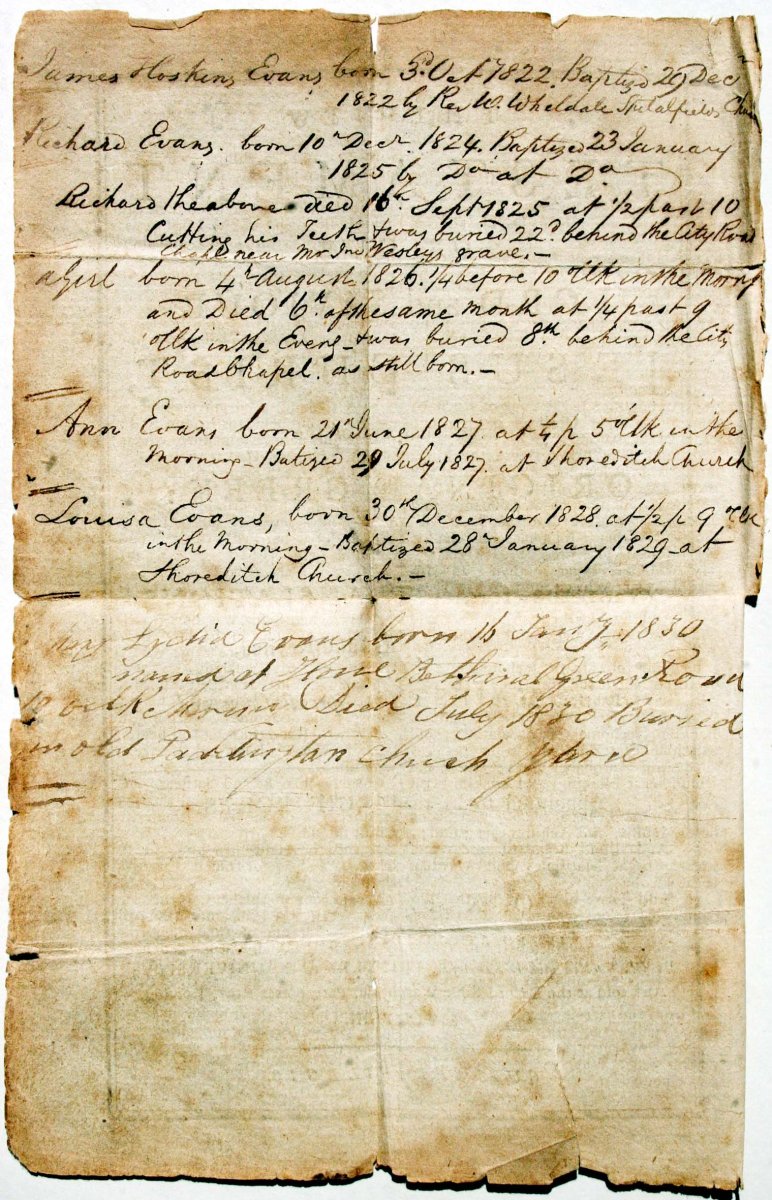 James Hoskins Evans born 3d. Oct 1822. Baptized 29 Decr
1822 by Rev W. Wheldale Spitalfields Chur
Richard Evans. born 10th Decr. 1824. Baptized 23 January
1825 by Do at Do
Richard the above died 16th Sept 1825 at 1/2 past 10
Cutting his Teeth & was buried 22d. behind the City Road
Chapel near Mr Jno Wesleys grave.-
a Girl born 4th August 1826. 1/4 before 10 OClk in the Morng
and Died 6th. of the same month at 1/4 past 9
OClk in the Eveng - & was buried 8th. behind the City
Road Chapel. as still born.-
Ann Evans born 21st June 1827. at 1/4 p 5 OClk in the
Morning - Batized 29 July 1827. at Shoreditch Church
Louisa Evans, born 30th December 1828. at 1/2 p 9 oClk
in the Morning - Baptized 28th January 1829 - at
Shoreditch Church.-
Lydia Evans born 16 Jany. 1830
named at Home Bethnal Green Road
oClk Died July 1830 Buried
in old Paddington Chuch yard